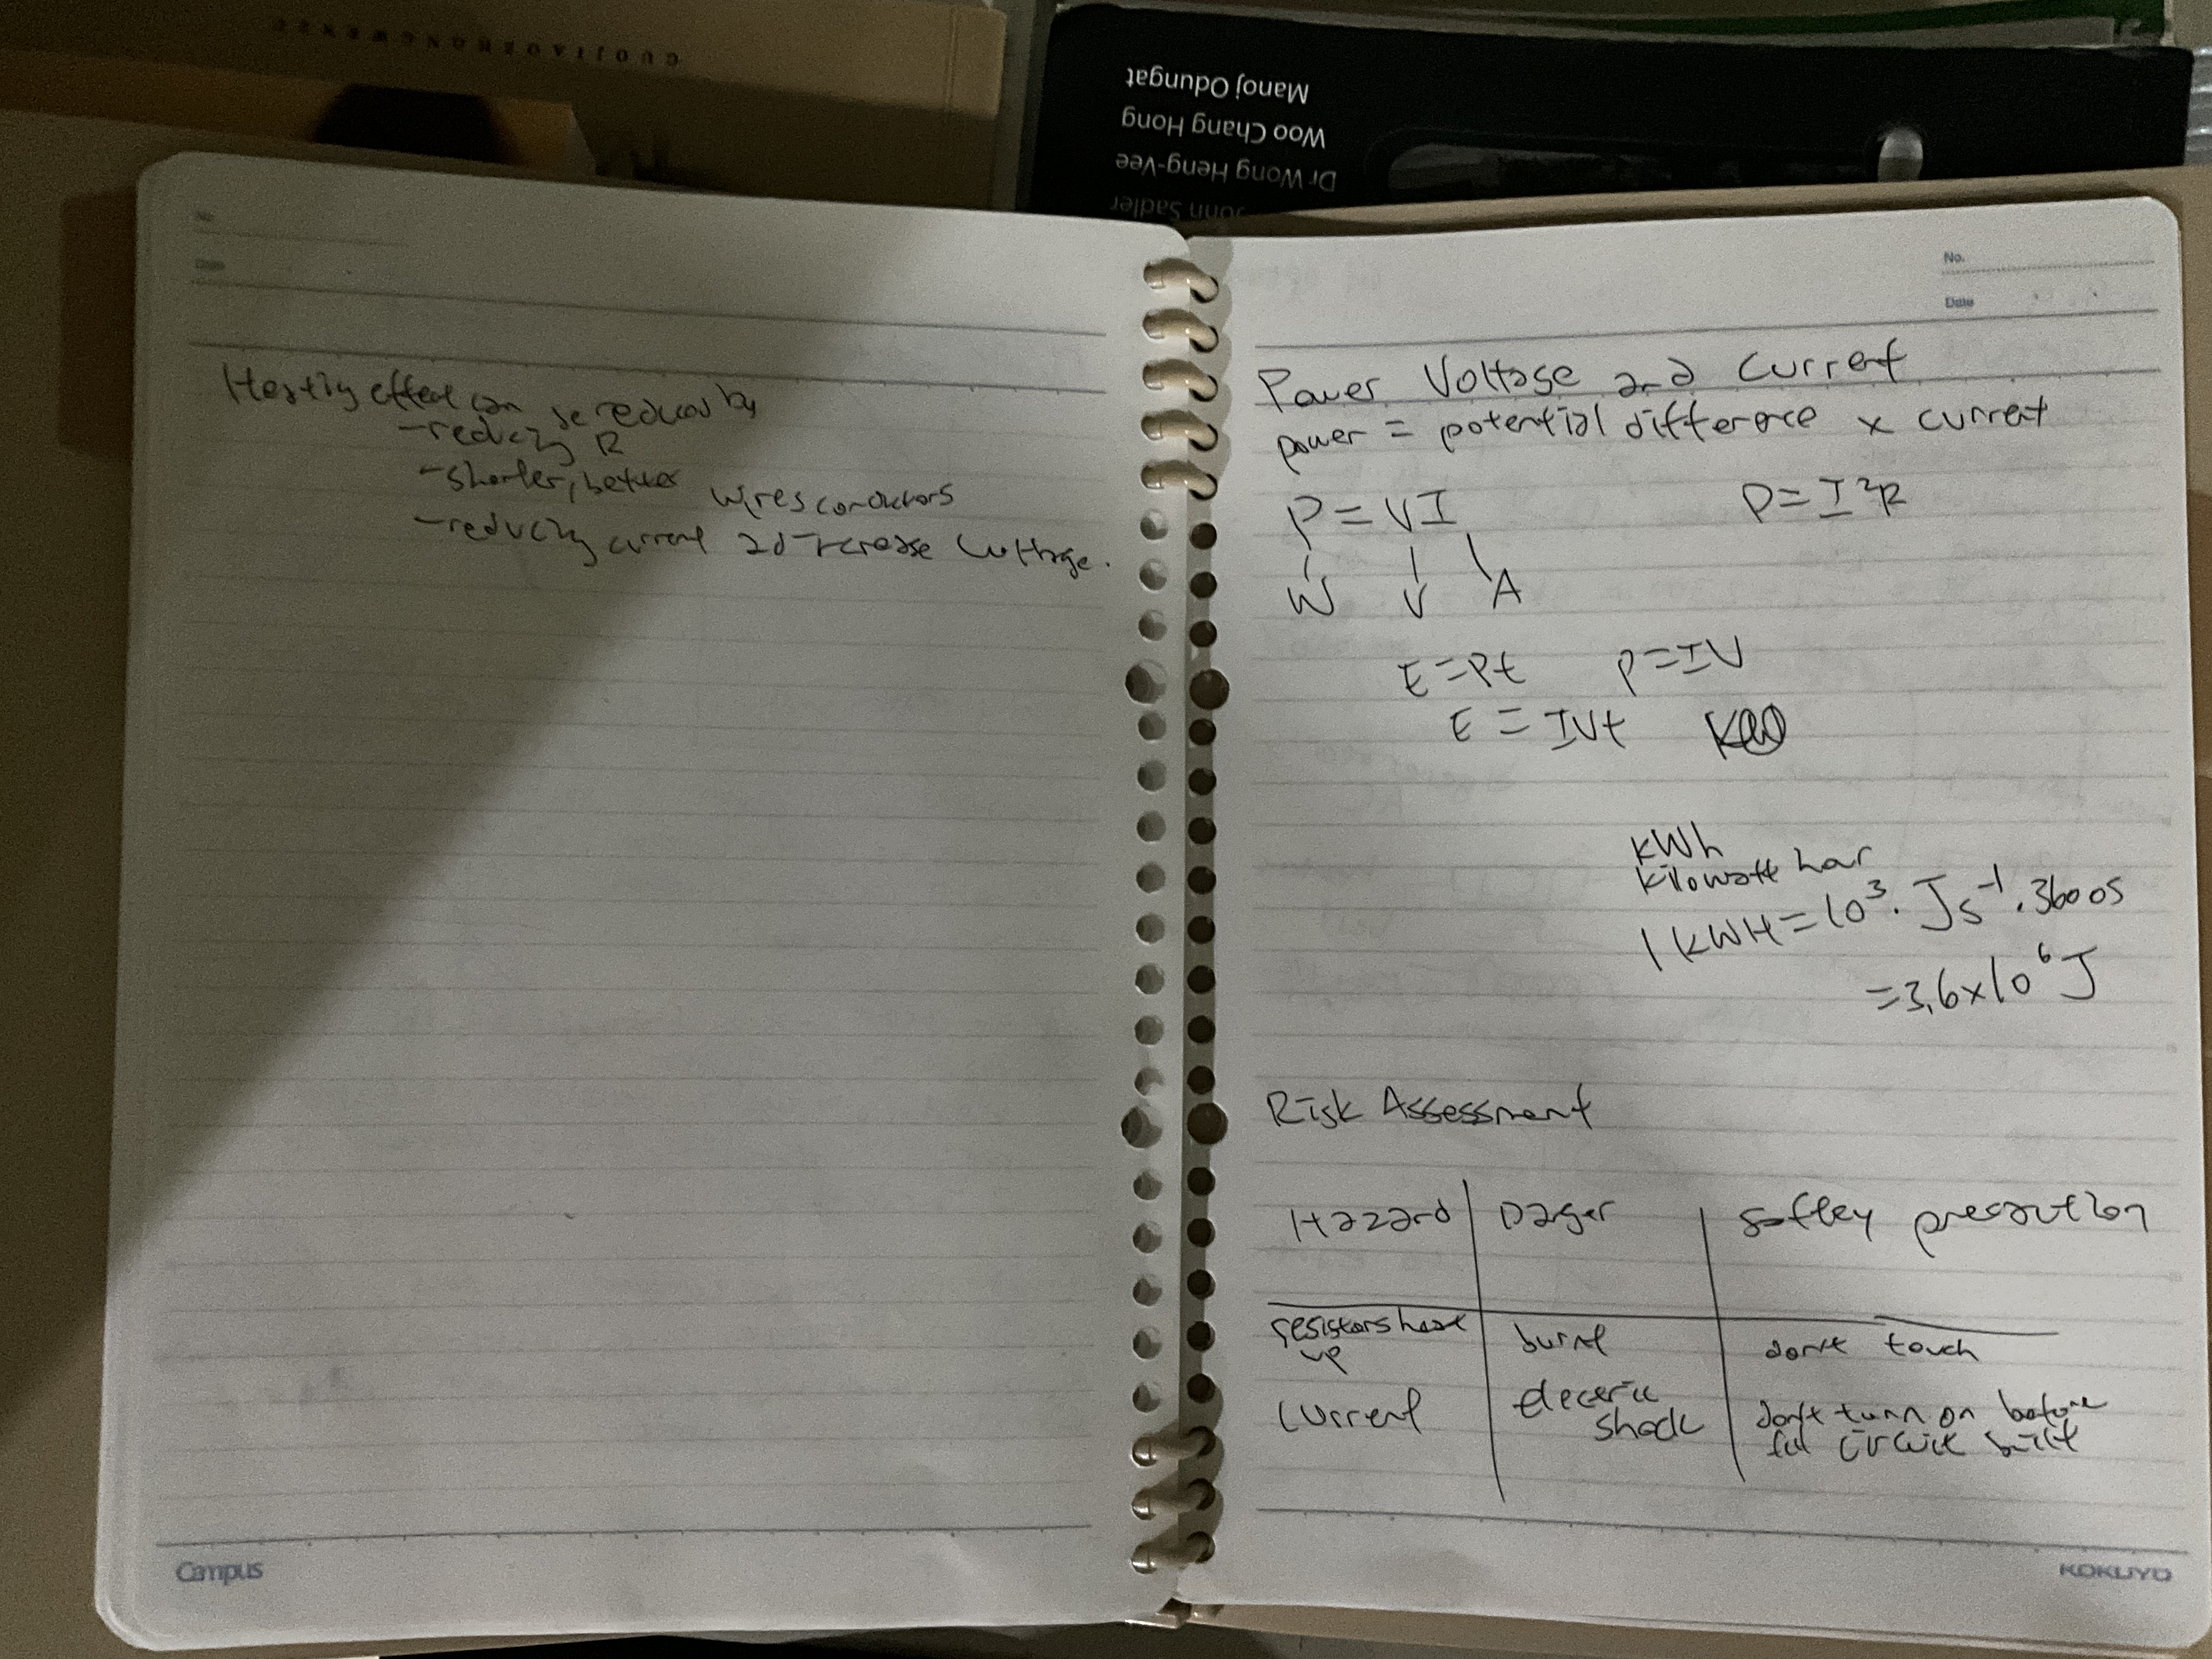 GUOJIAOBRONGWENSC
Manoj Odungat
Woo Chang Hong
Dr Wong Heng-Yee
John Sadler
No.
Date
Heating effect can be reduced by
-reducing R
-shorter, better wires conductors
-reducing current ad increase voltage.
Campus
No.
Date
Power Voltage and Current
power = potential difference x current
P = VI P = I²R
W V A
E = Pt P = IV
E = IVt
kWh
kilowatt hour
1 kWH = 10³. Js⁻¹. 3600s
= 3.6x10⁶ J
Risk Assessment
Hazard Danger Saftey precaution
resistors heat up burnt don't touch
Current electric shock don't turn on before full circuit built
KOKUYO